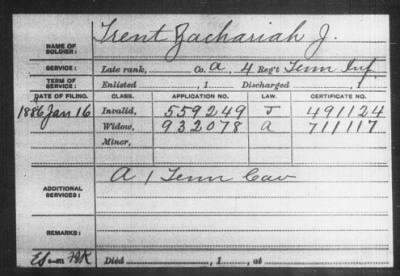 NAME OF SOLDIER: Trent Zachariah J.
SERVICE: Late rank, Co. A, 4 Reg't Tenn Inf.
TERM OF SERVICE: Enlisted , 1 Discharged , 1
DATE OF FILING. CLASS. APPLICATION NO. LAW. CERTIFICATE NO.
1886 Jan 16 Invalid, 559249 J 491124
Widow, 932078 A 711117
Minor,
ADDITIONAL SERVICES: A 1 Tenn Cav
REMARKS:
Died , 1 , at